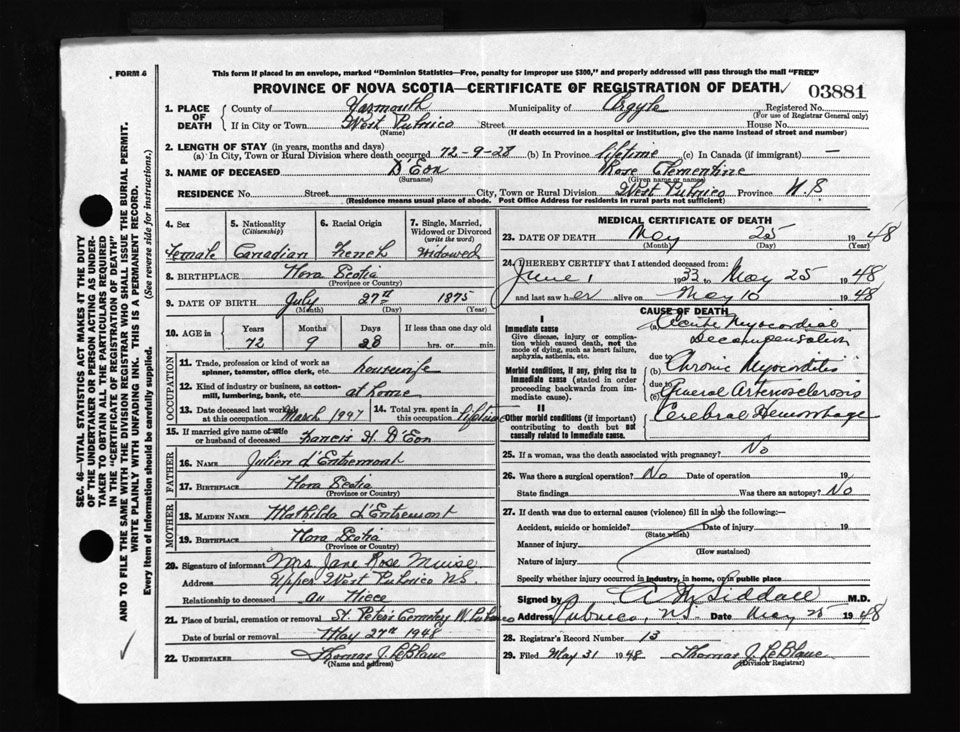 FORM 6
This form if placed in an envelope, marked "Dominion Statistics—Free, penalty for improper use $300," and properly addressed will pass through the mail "FREE"
PROVINCE OF NOVA SCOTIA—CERTIFICATE OF REGISTRATION OF DEATH
03881
1. PLACE OF DEATH County of Yarmouth Municipality of Argyle Registered No.
(For use of Registrar General only)
If in City or Town West Pubnico Street House No.
(Name) (If death occurred in a hospital or institution, give the name instead of street and number)
2. LENGTH OF STAY (in years, months and days)
(a) In City, Town or Rural Division where death occurred 72-9-28 (b) In Province lifetime (c) In Canada (if immigrant) —
3. NAME OF DECEASED D'Eon Rose Clementine
(Surname) (Given name or names)
RESIDENCE No. Street City, Town or Rural Division West Pubnico Province N.S
(Residence means usual place of abode. Post Office Address for residents in rural parts not sufficient)
4. Sex 5. Nationality (Citizenship) 6. Racial Origin 7. Single, Married, Widowed or Divorced (write the word)
Female Canadian French Widowed
8. BIRTHPLACE Nova Scotia
(Province or Country)
9. DATE OF BIRTH July 27th 1875
(Month) (Day) (Year)
10. AGE in Years Months Days If less than one day old
72 9 28 hrs. or min.
OCCUPATION
11. Trade, profession or kind of work as spinner, teamster, office clerk, etc. housewife
12. Kind of industry or business, as cotton-mill, lumbering, bank, etc. at home
13. Date deceased last worked at this occupation March 1947 14. Total yrs. spent in this occupation lifetime
15. If married give name of wife or husband of deceased Francis H. D'Eon
FATHER
16. NAME Julien d'Entremont
17. BIRTHPLACE Nova Scotia
(Province or Country)
MOTHER
18. MAIDEN NAME Mathilda d'Entremont
19. BIRTHPLACE Nova Scotia
(Province or Country)
20. Signature of informant Mrs Jane Rose Muise
Address Upper West Pubnico NS.
Relationship to deceased au Niece
21. Place of burial, cremation or removal St. Peter's Cemetery W. Pubnico
Date of burial or removal May 27th 1948
22. UNDERTAKER Thomas J. LeBlanc
(Name and address)
MEDICAL CERTIFICATE OF DEATH
23. DATE OF DEATH May 25 1948
(Month) (Day) (Year)
24. I HEREBY CERTIFY that I attended deceased from:
June 1 1933 to May 25 1948
and last saw her alive on May 10 1948
CAUSE OF DEATH
I
Immediate cause
Give disease, injury or complication which caused death, not the mode of dying, such as heart failure, asphyxia, asthenia, etc.
(a) Acute Myocardial Decompensation
due to
Morbid conditions, if any, giving rise to immediate cause (stated in order proceeding backwards from immediate cause).
(b) Chronic Myocarditis
due to
(c) General Arteriosclerosis
II
Other morbid conditions (if important) contributing to death but not causally related to immediate cause.
Cerebral Hemorrhage
25. If a woman, was the death associated with pregnancy? No
26. Was there a surgical operation? No Date of operation 19
State findings Was there an autopsy? No
27. If death was due to external causes (violence) fill in also the following:—
Accident, suicide or homicide? Date of injury 19
(State which)
Manner of injury
(How sustained)
Nature of injury
Specify whether injury occurred in industry, in home, or in public place
Signed by A M Siddall M.D.
Address Pubnico, NS. Date May 25 1948
28. Registrar's Record Number 13
29. Filed May 31 1948 Thomas J. LeBlanc
(Division Registrar)
SEC. 46—VITAL STATISTICS ACT MAKES IT THE DUTY
OF THE UNDERTAKER OR PERSON ACTING AS UNDER-
TAKER TO OBTAIN ALL THE PARTICULARS REQUIRED
IN THE "CERTIFICATE OF REGISTRATION OF DEATH"
AND TO FILE THE SAME WITH THE DIVISION REGISTRAR WHO SHALL ISSUE THE BURIAL PERMIT.
WRITE PLAINLY WITH UNFADING INK. THIS IS A PERMANENT RECORD.
Every item of information should be carefully supplied. (See reverse side for instructions.)